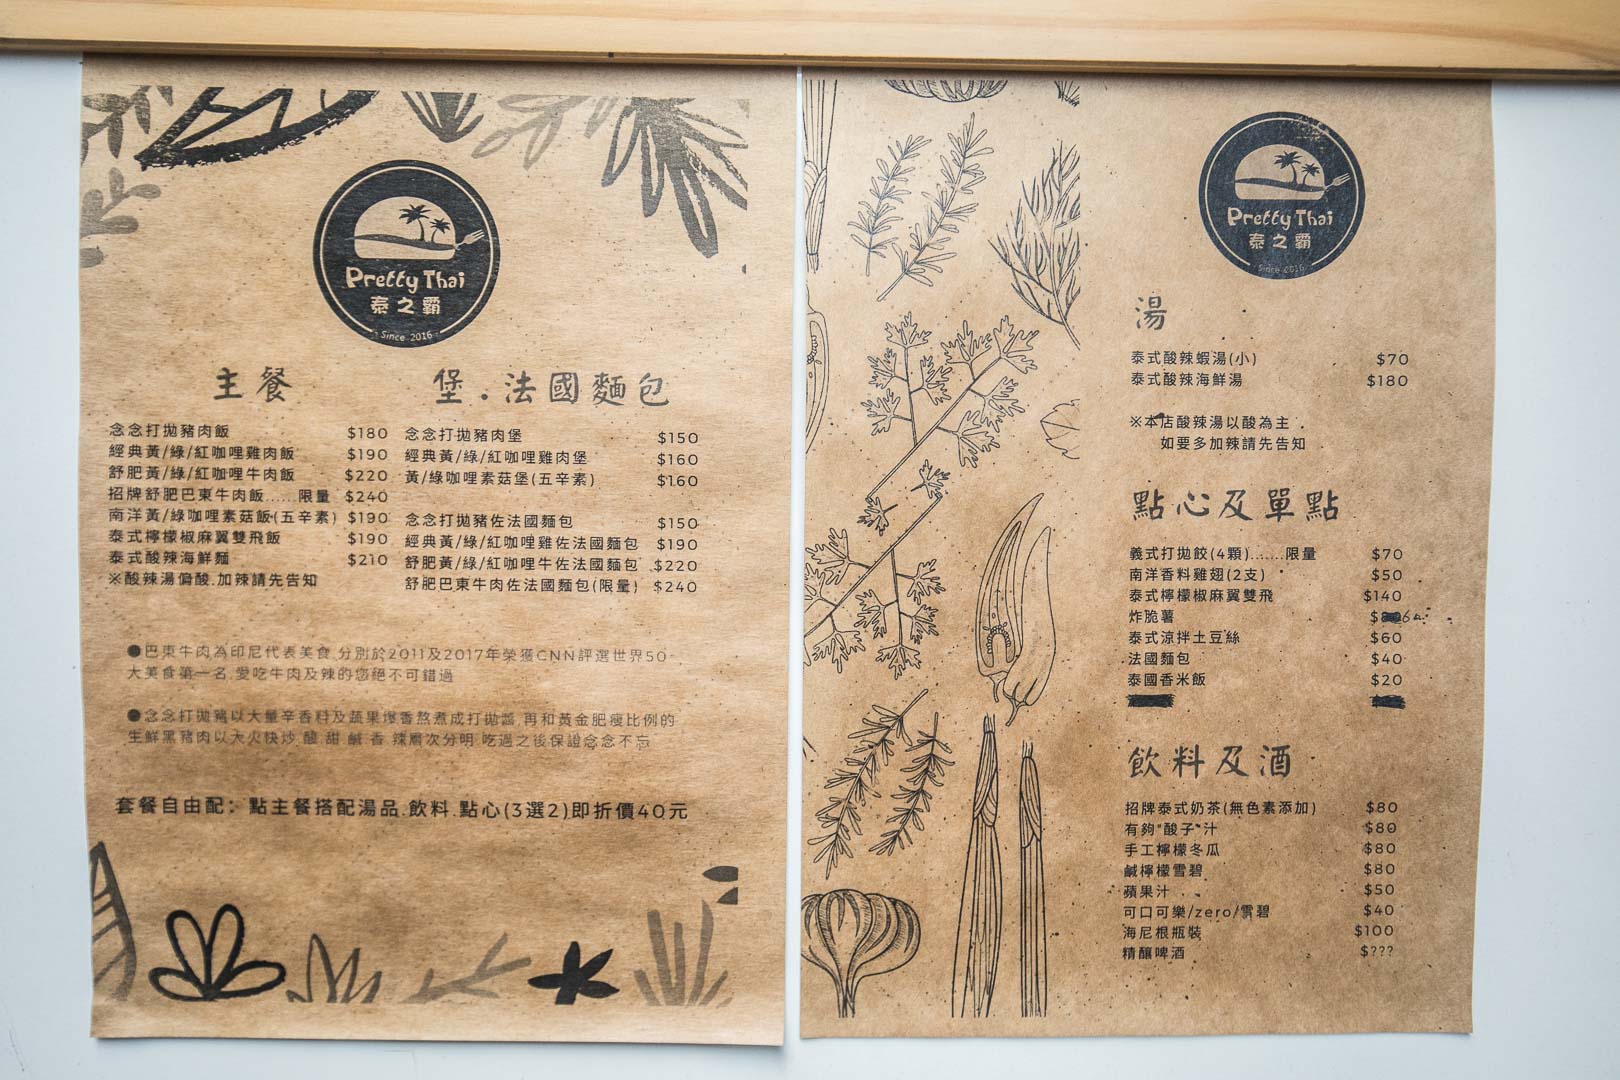 Pretty Thai
泰之霸
Since 2016
主餐
念念打拋豬肉飯 $180
經典黃/綠/紅咖哩雞肉飯 $190
舒肥黃/綠/紅咖哩牛肉飯 $220
招牌舒肥巴東牛肉飯......限量 $240
南洋黃/綠咖哩素菇飯(五辛素) $190
泰式檸檬椒麻翼雙飛飯 $190
泰式酸辣海鮮麵 $210
※酸辣湯偏酸.加辣請先告知
堡.法國麵包
念念打拋豬肉堡 $150
經典黃/綠/紅咖哩雞肉堡 $160
黃/綠咖哩素菇堡(五辛素) $160
念念打拋豬佐法國麵包 $150
經典黃/綠/紅咖哩雞佐法國麵包 $190
舒肥黃/綠/紅咖哩牛佐法國麵包 $220
舒肥巴東牛肉佐法國麵包(限量) $240
●巴東牛肉為印尼代表美食.分別於2011及2017年榮獲CNN評選世界50
大美食第一名.愛吃牛肉及辣的您絕不可錯過
●念念打拋豬以大量辛香料及蔬果爆香熬煮成打拋醬.再和黃金肥瘦比例的
生鮮黑豬肉以大火快炒.酸.甜.鹹.香.辣層次分明.吃過之後保證念念不忘
套餐自由配：點主餐搭配湯品.飲料.點心(3選2)即折價40元
Pretty Thai
泰之霸
Since 2016
湯
泰式酸辣蝦湯(小) $70
泰式酸辣海鮮湯 $180
※本店酸辣湯以酸為主
如要多加辣請先告知
點心及單點
義式打拋餃(4顆).......限量 $70
南洋香料雞翅(2支) $50
泰式檸檬椒麻翼雙飛 $140
炸脆薯 $
泰式涼拌土豆絲 $60
法國麵包 $40
泰國香米飯 $20
飲料及酒
招牌泰式奶茶(無色素添加) $80
有夠"酸子"汁 $80
手工檸檬冬瓜 $80
鹹檸檬雪碧 $80
蘋果汁 $50
可口可樂/zero/雪碧 $40
海尼根瓶裝 $100
精釀啤酒 $???